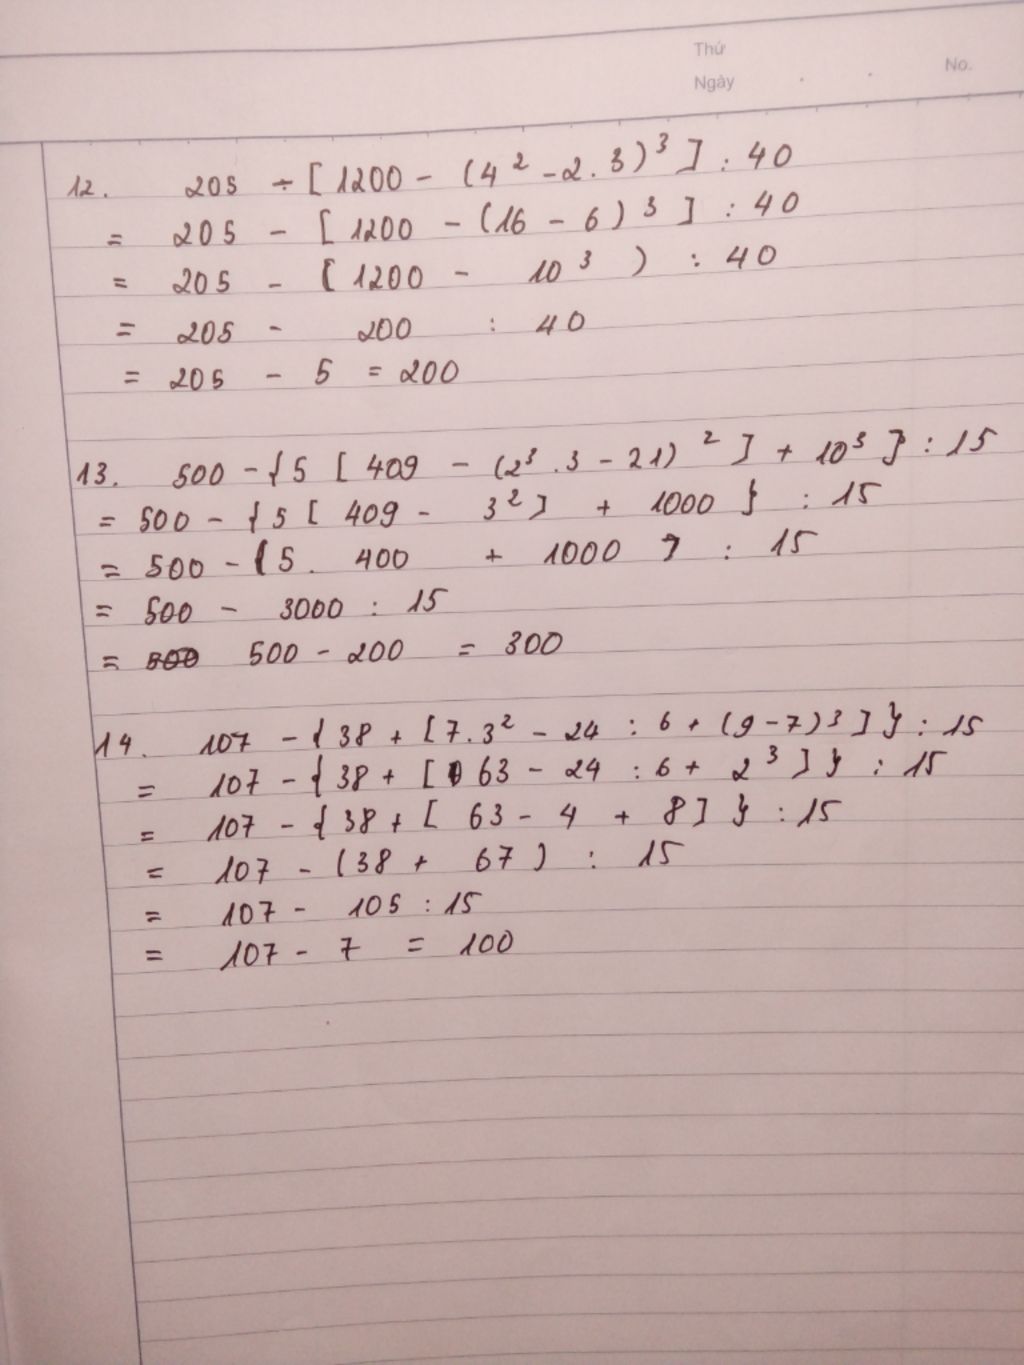 Thứ
Ngày . . No.
12. 205 ÷ [ 1200 - (4² - 2.3)³ ] : 40
= 205 - [ 1200 - (16 - 6)³ ] : 40
= 205 - [ 1200 - 10³ ) : 40
= 205 - 200 : 40
= 205 - 5 = 200
13. 500 - { 5 [ 409 - (2³.3 - 21)² ] + 10³ } : 15
= 500 - { 5 [ 409 - 3² ] + 1000 } : 15
= 500 - { 5 . 400 + 1000 } : 15
= 500 - 3000 : 15
= 500 - 200 = 300
14. 107 - { 38 + [ 7.3² - 24 : 6 + (9-7)³ ] } : 15
= 107 - { 38 + [ 63 - 24 : 6 + 2³ ] } : 15
= 107 - { 38 + [ 63 - 4 + 8 ] } : 15
= 107 - ( 38 + 67 ) : 15
= 107 - 105 : 15
= 107 - 7 = 100